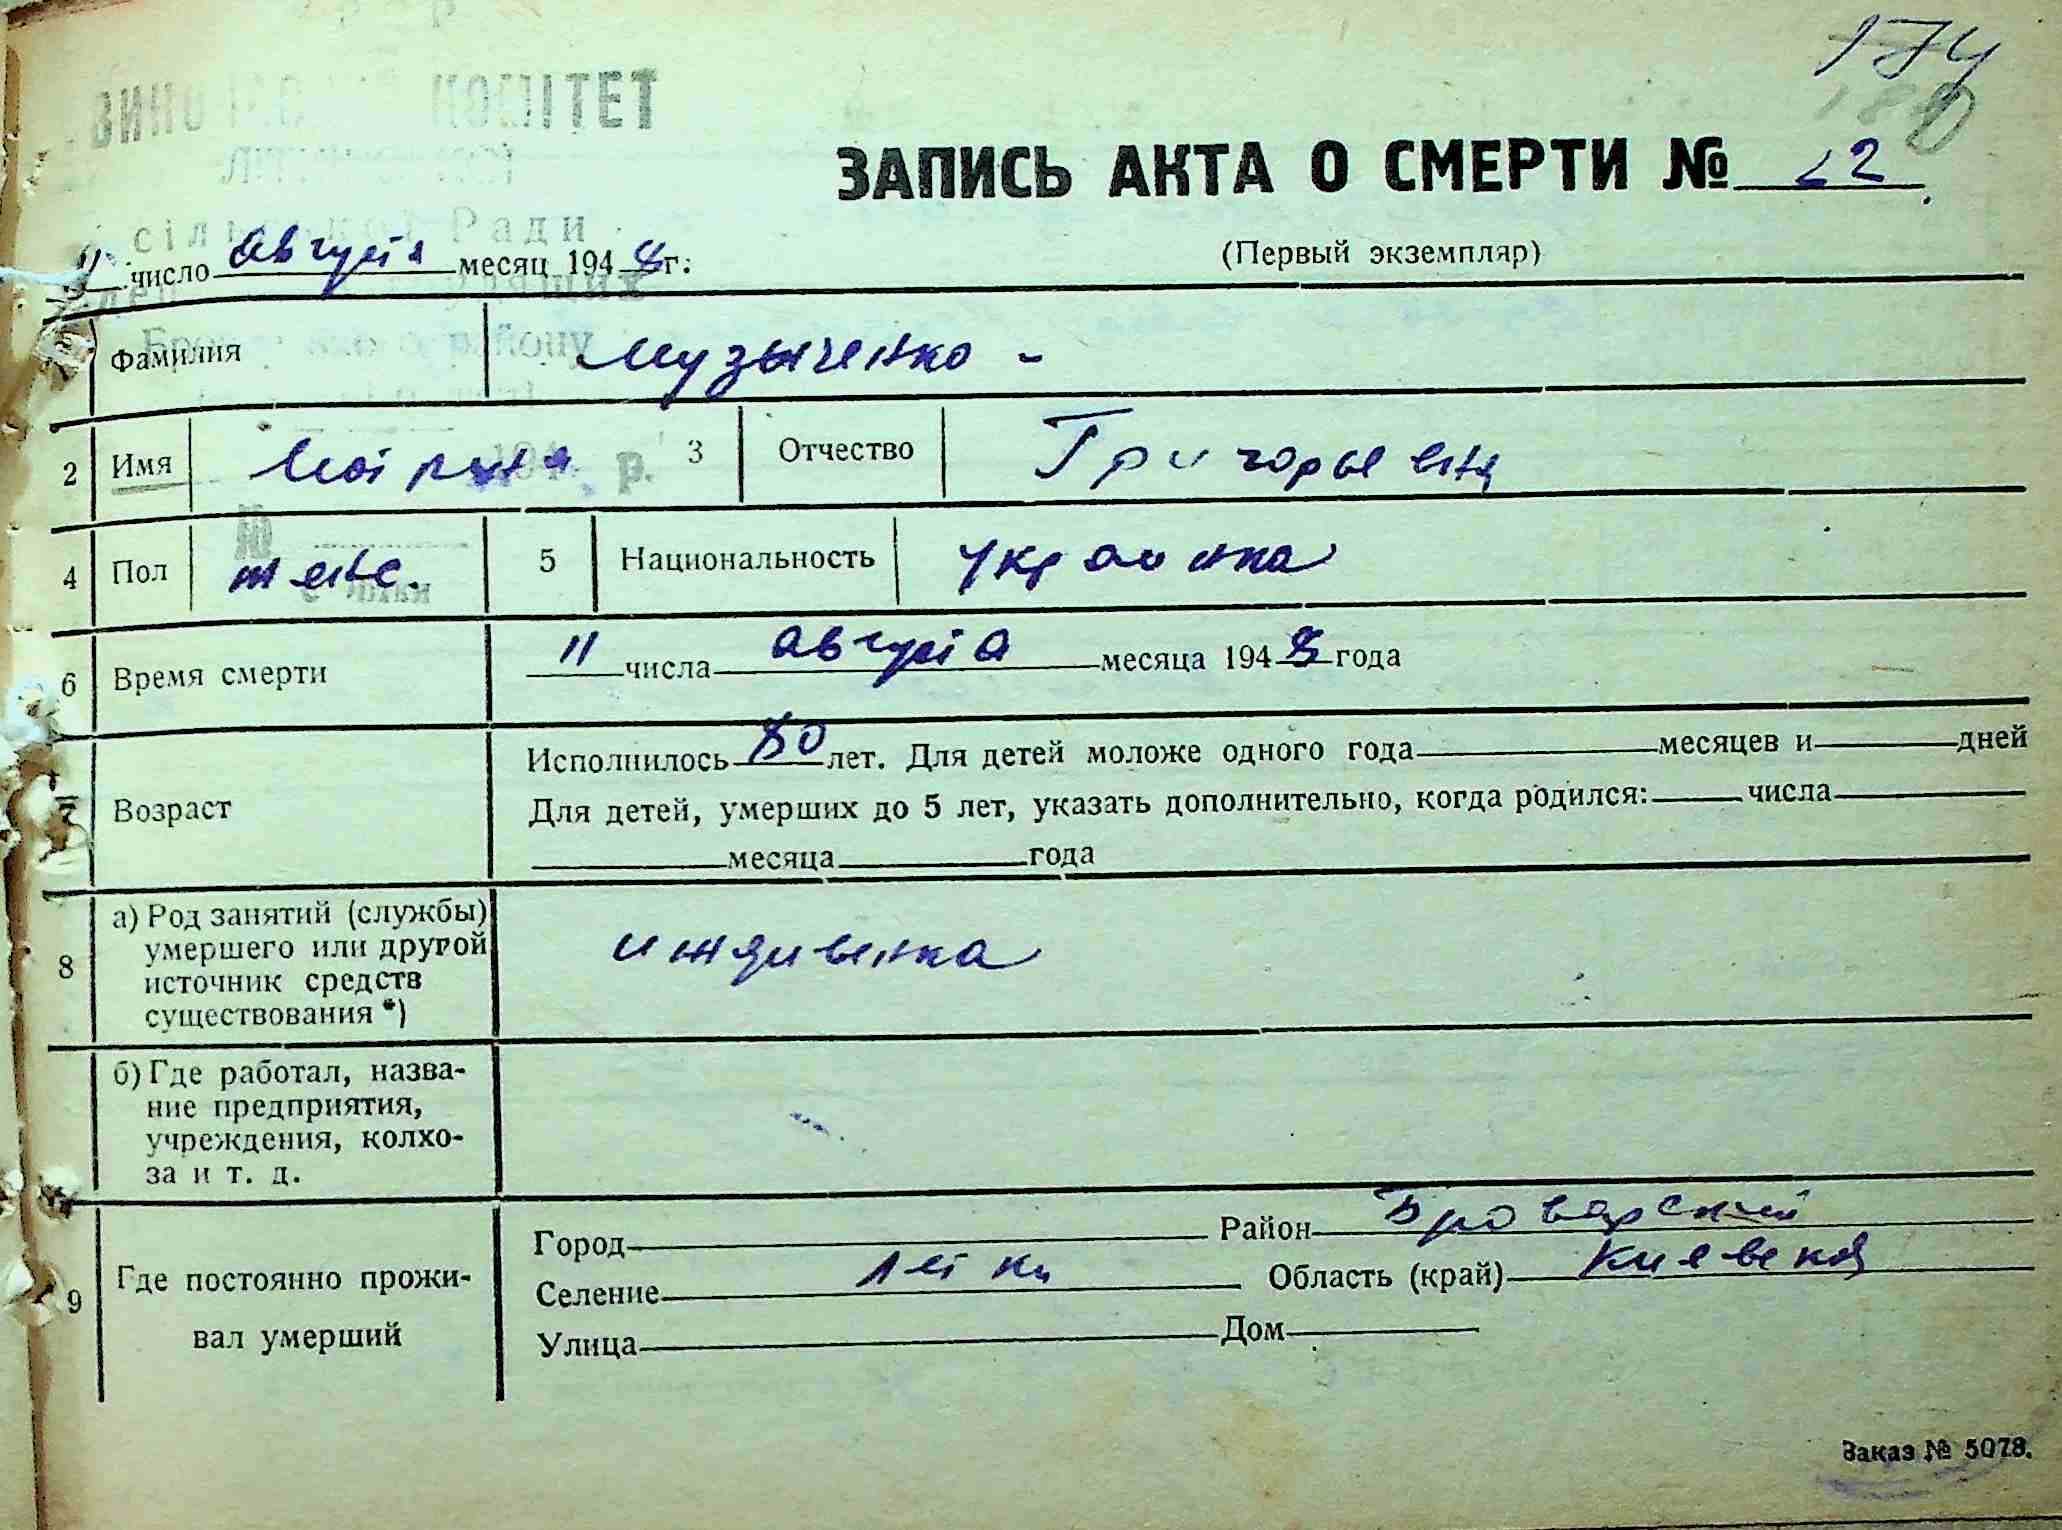 174
180
ВИКОНАВЧИЙ КОМІТЕТ
сільської Ради
ЗАПИСЬ АКТА О СМЕРТИ № 22
(Первый экземпляр)
11 число августа месяц 1948 г.
Фамилия Музыченко -
2 Имя Марина 3 Отчество Григорьевна
4 Пол женс. 5 Национальность украинка
6 Время смерти 11 числа августа месяца 1948 года
7 Возраст Исполнилось 80 лет. Для детей моложе одного года месяцев и дней
Для детей, умерших до 5 лет, указать дополнительно, когда родился: числа
месяца года
8 а) Род занятий (службы)
умершего или другой
источник средств
существования *)
иждивенка
б) Где работал, назва-
ние предприятия,
учреждения, колхо-
за и т. д.
9 Где постоянно прожи-
вал умерший
Город Район Броварский
Селение Летки Область (край) Киевская
Улица Дом
Заказ № 5078.